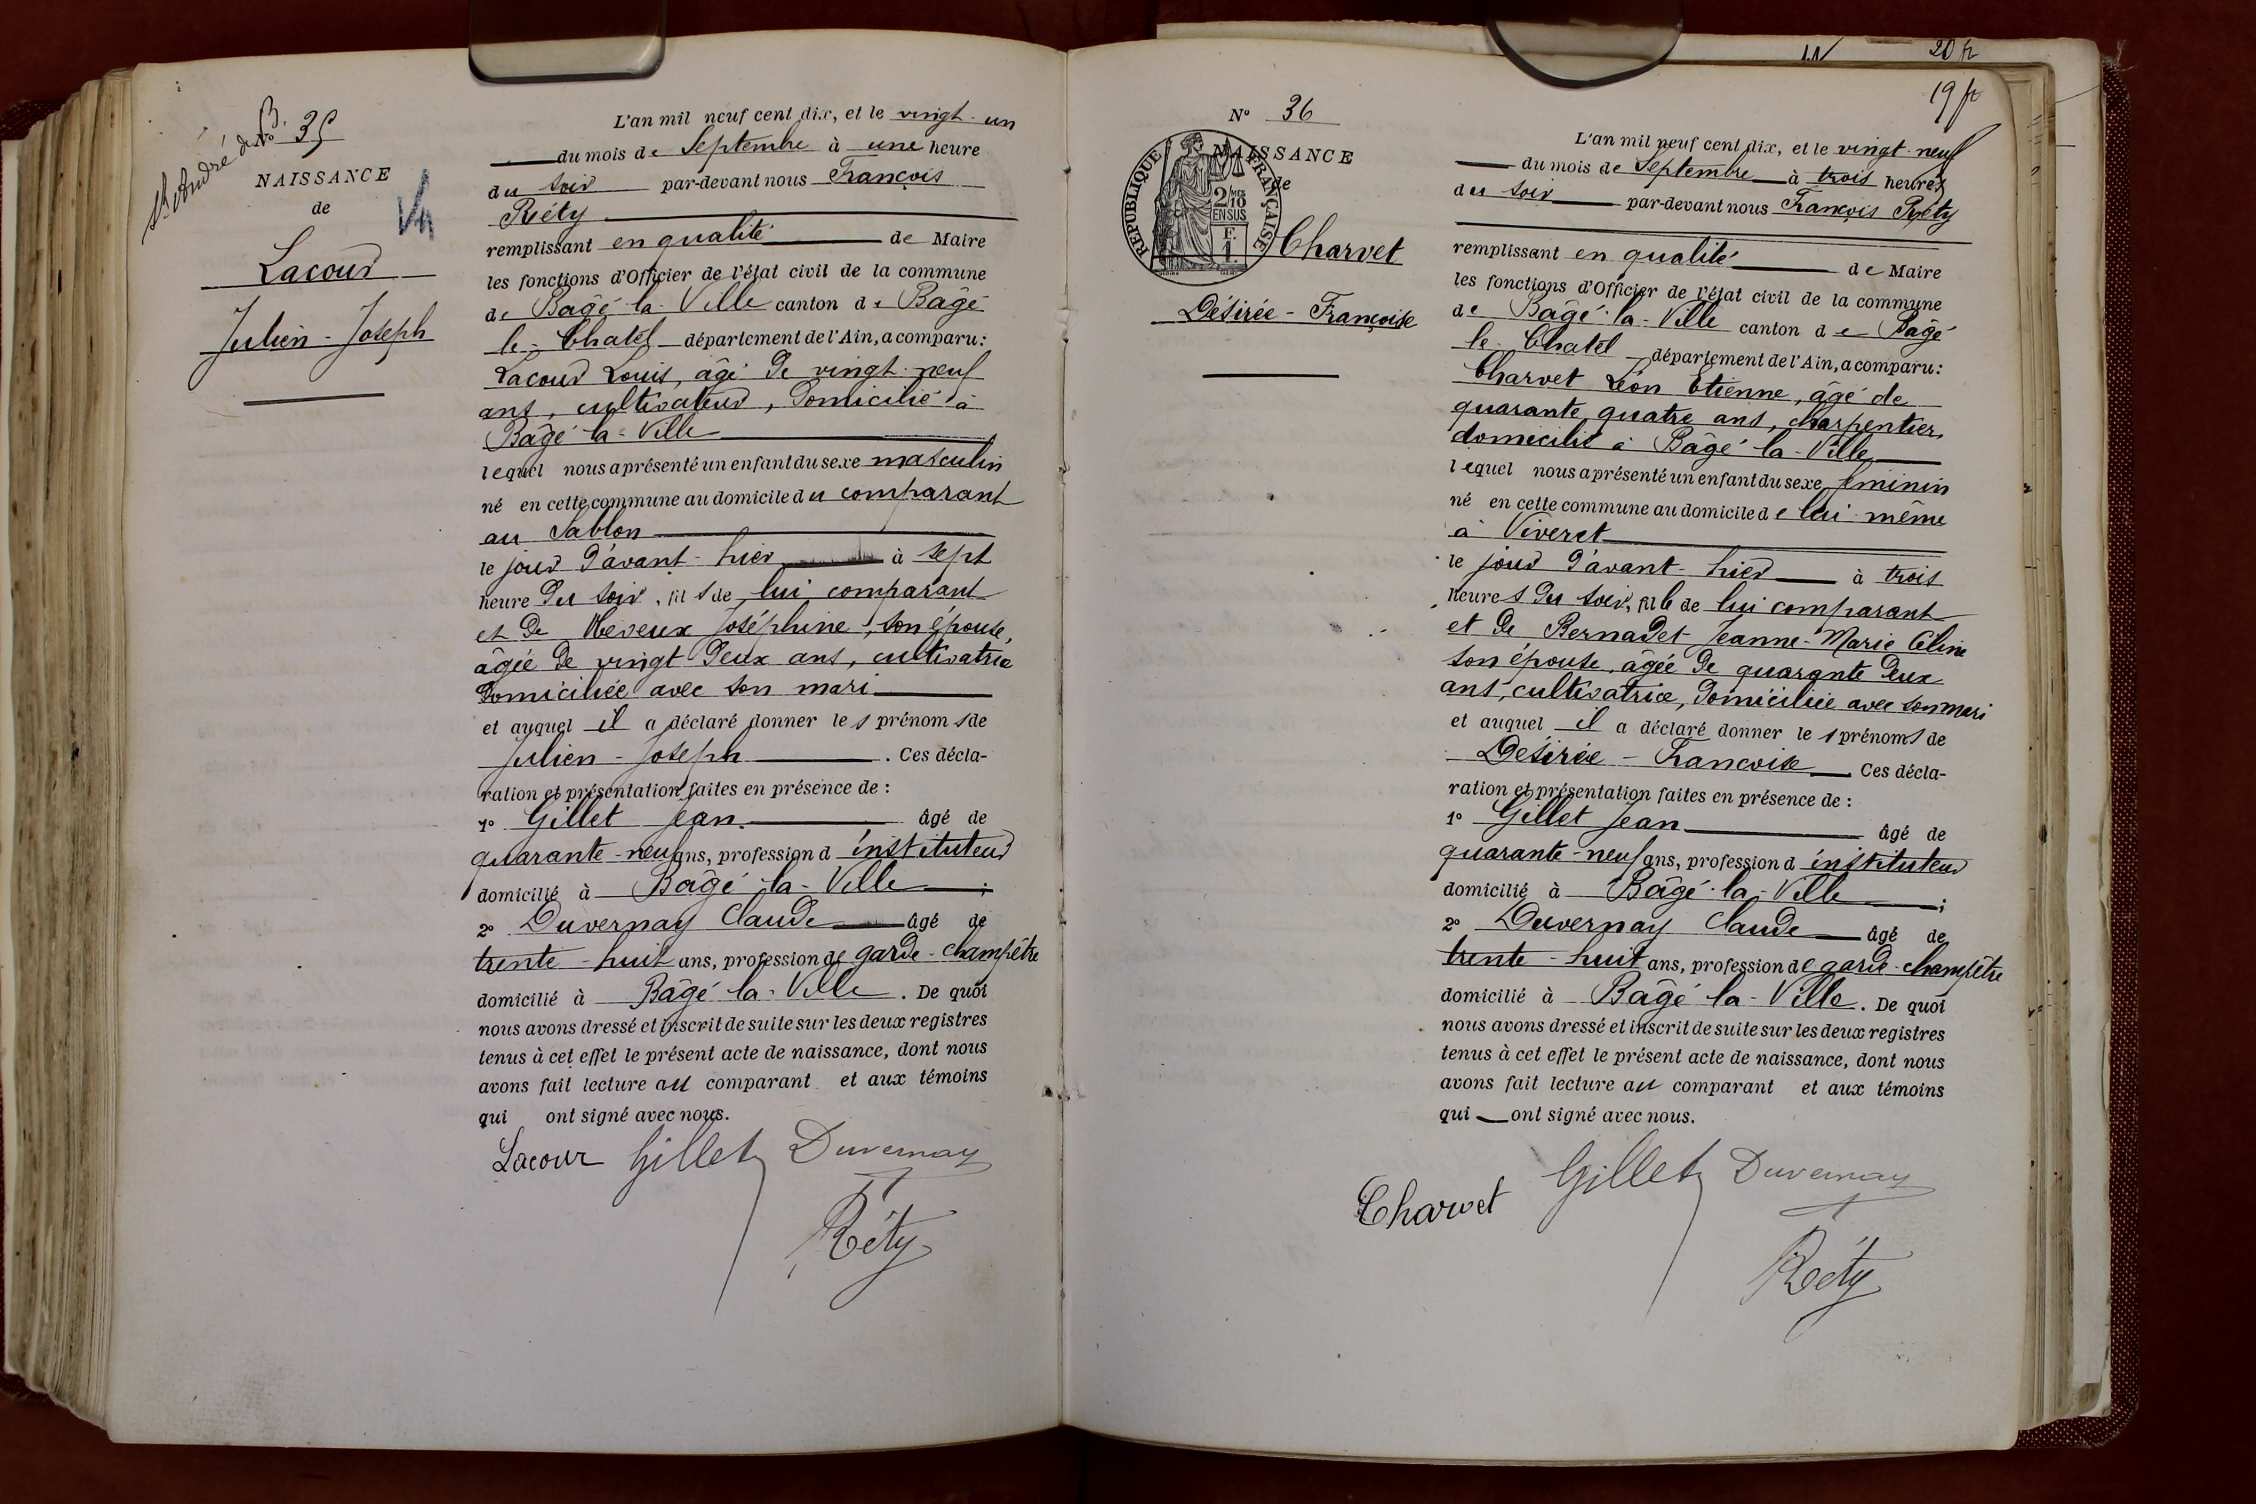 St André de B.
No 35
NAISSANCE
de
Lacour
Julien - Joseph
L'an mil neuf cent dix, et le vingt-un
du mois de Septembre à une heure
du soir par-devant nous François
Réty
remplissant en qualité de Maire
les fonctions d'Officier de l'état civil de la commune
de Bâgé-la-Ville canton de Bâgé
le-Chatel département de l'Ain, a comparu:
Lacour Louis, âgé de vingt-neuf
ans, cultivateur, domicilié à
Bâgé-la-Ville
lequel nous a présenté un enfant du sexe masculin
né en cette commune au domicile du comparant
au Sablon
le jour d'avant-hier à sept
heure du soir, fils de lui comparant
et de Meveux Joséphine, son épouse,
âgée de vingt deux ans, cultivatrice
domiciliée avec son mari
et auquel il a déclaré donner les prénoms de
Julien - Joseph. Ces décla-
ration et présentation faites en présence de :
1º Gillet Jean âgé de
quarante-neuf ans, profession d instituteur
domicilié à Bâgé-la-Ville ;
2º Duvernay Claude âgé de
trente-huit ans, profession de garde-champêtre
domicilié à Bâgé-la-Ville. De quoi
nous avons dressé et inscrit de suite sur les deux registres
tenus à cet effet le présent acte de naissance, dont nous
avons fait lecture au comparant et aux témoins
qui ont signé avec nous.
Lacour Gillet Duvernay
Réty
20 fr
19 fr
Nº 36
NAISSANCE
de
REPUBLIQUE FRANÇAISE
2/10 MES
EN SUS
F.
1.
Charvet
Désirée - Françoise
L'an mil neuf cent dix, et le vingt-neuf
du mois de Septembre à trois heures
du soir par-devant nous François Réty
remplissant en qualité de Maire
les fonctions d'Officier de l'état civil de la commune
de Bâgé-la-Ville canton de Bâgé
le-Chatel département de l'Ain, a comparu:
Charvet Léon Etienne, âgé de
quarante quatre ans, charpentier,
domicilié à Bâgé-la-Ville
lequel nous a présenté un enfant du sexe féminin
né en cette commune au domicile de lui-même
à Viveret
le jour d'avant-hier à trois
heures du soir, fille de lui comparant
et de Bernadet Jeanne-Marie Céline
son épouse, âgée de quarante deux
ans, cultivatrice, domiciliée avec son mari
et auquel il a déclaré donner les prénoms de
Désirée - Françoise Ces décla-
ration et présentation faites en présence de :
1º Gillet Jean âgé de
quarante-neuf ans, profession d instituteur
domicilié à Bâgé-la-Ville ;
2º Duvernay Claude âgé de
trente-huit ans, profession de garde-champêtre
domicilié à Bâgé-la-Ville. De quoi
nous avons dressé et inscrit de suite sur les deux registres
tenus à cet effet le présent acte de naissance, dont nous
avons fait lecture au comparant et aux témoins
qui ont signé avec nous.
Charvet Gillet Duvernay
Réty